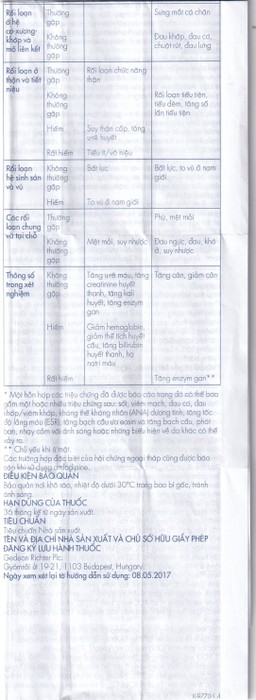 Rối loạn ở hệ cơ xương khớp và mô liên kết
Thường gặp
Sưng mắt cá chân
Không thường gặp
Đau khớp, đau cơ, chuột rút, đau lưng
Rối loạn ở thận và tiết niệu
Thường gặp
Rối loạn chức năng thận
Không thường gặp
Rối loạn tiểu tiện, tiểu đêm, tăng số lần tiểu tiện
Hiếm
Suy thận cấp, tăng urê huyết
Rất hiếm
Tiểu ít/vô niệu
Rối loạn hệ sinh sản và vú
Không thường gặp
Bất lực
Bất lực, to vú ở nam giới
Hiếm
To vú ở nam giới
Các rối loạn chung và tại chỗ
Thường gặp
Phù, mệt mỏi
Không thường gặp
Mệt mỏi, suy nhược
Đau ngực, đau, khó ở, suy nhược
Thông số trong xét nghiệm
Không thường gặp
Tăng urê máu, tăng creatinine huyết thanh, tăng kali huyết, tăng enzym gan
Tăng cân, giảm cân
Hiếm
Giảm hemoglobin, giảm thể tích huyết cầu, tăng bilirubin huyết thanh, hạ natri máu
Rất hiếm
Tăng enzym gan**
* Một hỗn hợp các triệu chứng đã được báo cáo trong đó có thể bao
gồm một hoặc nhiều triệu chứng sau: sốt, viêm mạch, đau cơ, đau
khớp/viêm khớp, kháng thể kháng nhân (ANA) dương tính, tăng tốc
độ lắng máu (ESR), tăng bạch cầu ưa eosin và tăng bạch cầu, phát
ban, nhạy cảm với ánh sáng hoặc những biểu hiện về da khác có thể
xảy ra.
** Chủ yếu khi ứ mật
Các trường hợp đặc biệt của hội chứng ngoại tháp cũng được báo
cáo khi sử dụng amlodipine.
ĐIỀU KIỆN BẢO QUẢN
Bảo quản nơi khô ráo, nhiệt độ dưới 30°C trong bao bì gốc, tránh
ánh sáng.
HẠN DÙNG CỦA THUỐC
36 tháng kể từ ngày sản xuất.
TIÊU CHUẨN
Tiêu chuẩn Nhà sản xuất
TÊN VÀ ĐỊA CHỈ NHÀ SẢN XUẤT VÀ CHỦ SỞ HỮU GIẤY PHÉP
ĐĂNG KÝ LƯU HÀNH THUỐC
Gedeon Richter Plc.
Gyömrői út 19-21, 1103 Budapest, Hungary.
Ngày xem xét lại tờ hướng dẫn sử dụng: 08.05.2017